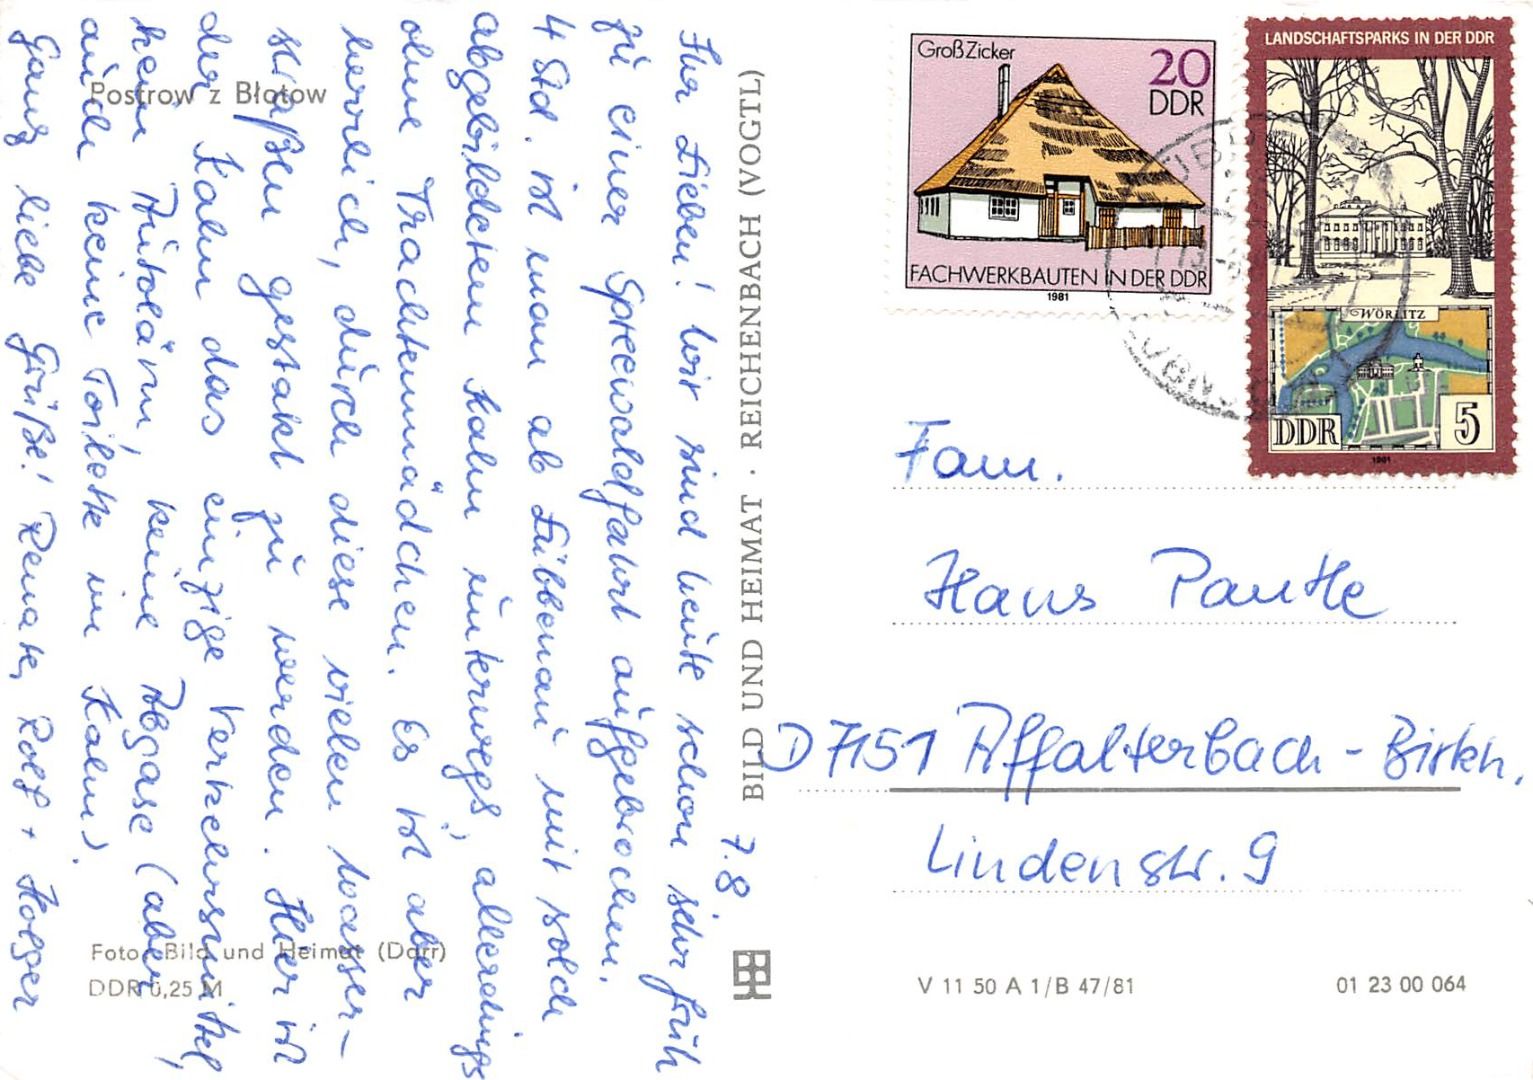 Postrow z Błotow
7.8.
Ihr Lieben! Wir sind heute schon sehr früh
zu einer Spreewaldfahrt aufgebrochen.
4 Std. ist man ab Lübbenau mit solch
abgebildetem Kahn unterwegs, allerdings
ohne Trachtenmädchen. Es ist aber
herrlich, durch diese vielen Wasser-
straßen gestakt zu werden. Hier ist
der Kahn das einzige Verkehrsmittel,
kein Autolärm, keine Abgase (aber
auch keine Toilette im Kahn).
Ganz liebe Grüße! Renate, Rolf + Holger
Foto: Bild und Heimat (Darr)
DDR 0,25 M
BILD UND HEIMAT · REICHENBACH (VOGTL)
Groß Zicker
20
DDR
FACHWERKBAUTEN IN DER DDR
1981
LANDSCHAFTSPARKS IN DER DDR
WÖRLITZ
DDR
5
1981
Fam.
Hans Pantle
D 7151 Affalterbach - Birkh.
Lindenstr. 9
V 11 50 A 1/B 47/81
01 23 00 064